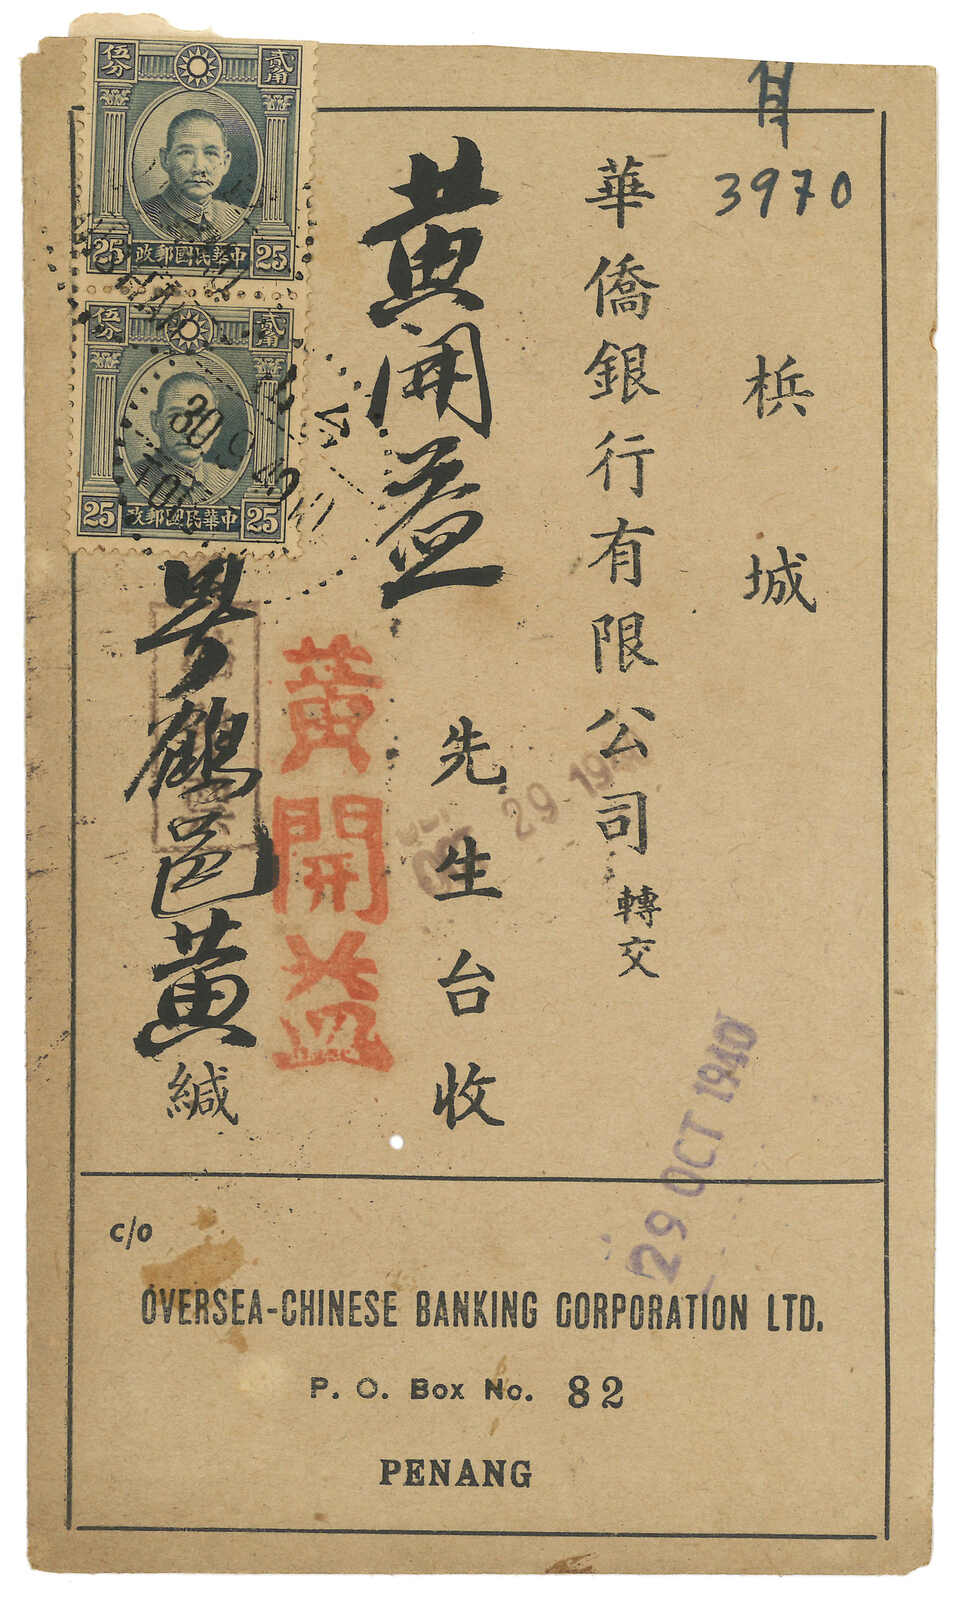 3970
梹城
華僑銀行有限公司轉交
黃開益
先生台收
黃開益
粤鶴邑黃緘
伍分 貳角
25 中華民國郵政 25
伍分 貳角
25 中華民國郵政 25
30 9 40
OCT 29 19
29 OCT 1940
c/o
OVERSEA-CHINESE BANKING CORPORATION LTD.
P. O. Box No. 82
PENANG